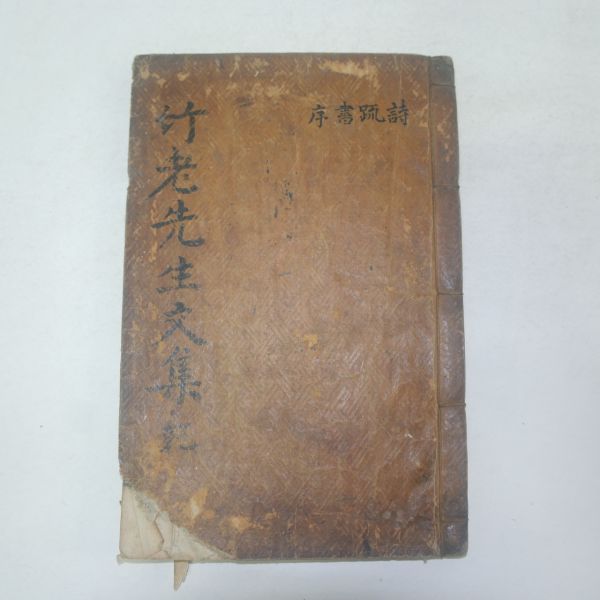 詩疏書序
竹老先生文集 乾